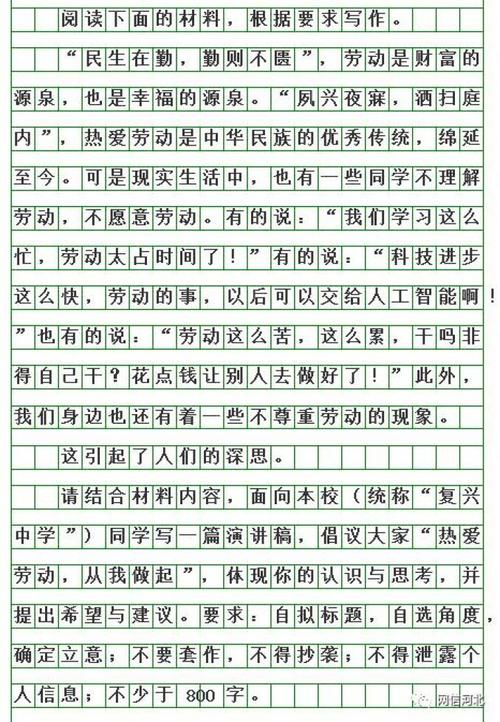 阅读下面的材料，根据要求写作。
“民生在勤，勤则不匮”，劳动是财富的
源泉，也是幸福的源泉。“夙兴夜寐，洒扫庭
内”，热爱劳动是中华民族的优秀传统，绵延
至今。可是现实生活中，也有一些同学不理解
劳动，不愿意劳动。有的说：“我们学习这么
忙，劳动太占时间了！”有的说：“科技进步
这么快，劳动的事，以后可以交给人工智能啊！
”也有的说：“劳动这么苦，这么累，干吗非
得自己干？花点钱让别人去做好了！”此外，
我们身边也还有着一些不尊重劳动的现象。
这引起了人们的深思。
请结合材料内容，面向本校（统称“复兴
中学”）同学写一篇演讲稿，倡议大家“热爱
劳动，从我做起”，体现你的认识与思考，并
提出希望与建议。要求：自拟标题，自选角度，
确定立意；不要套作，不得抄袭；不得泄露个
人信息；不少于 800 字。
网信河北